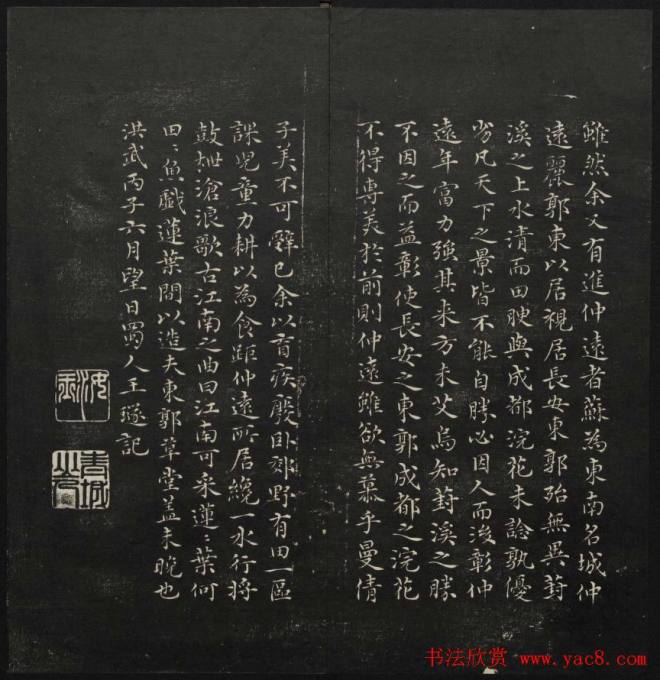 雖然余又有進仲遠者蘇為東南名城仲
遠麗郭東以居視居長安東郭殆無異葑
溪之上水清而田腴與成都浣花未諗孰優
劣凡天下之景皆不能自勝必因人而後彰仲
遠年富力強其来方未艾烏知葑溪之勝
不因之而益彰使長安之東郭成都之浣花
不得專美於前則仲遠雖欲無慕乎曼倩
子美不可辭已余以盲疾廢卧郊野有田一區
課児童力耕以為食距仲遠所居繞一水行將
鼓枻滄浪歌古江南之曲曰江南可采蓮〻葉何
田〻魚戲蓮葉間以造夫東郭草堂蓋未晩也
洪武丙子六月望日蜀人王璲記
青城山
书法欣赏 www.yac8.com